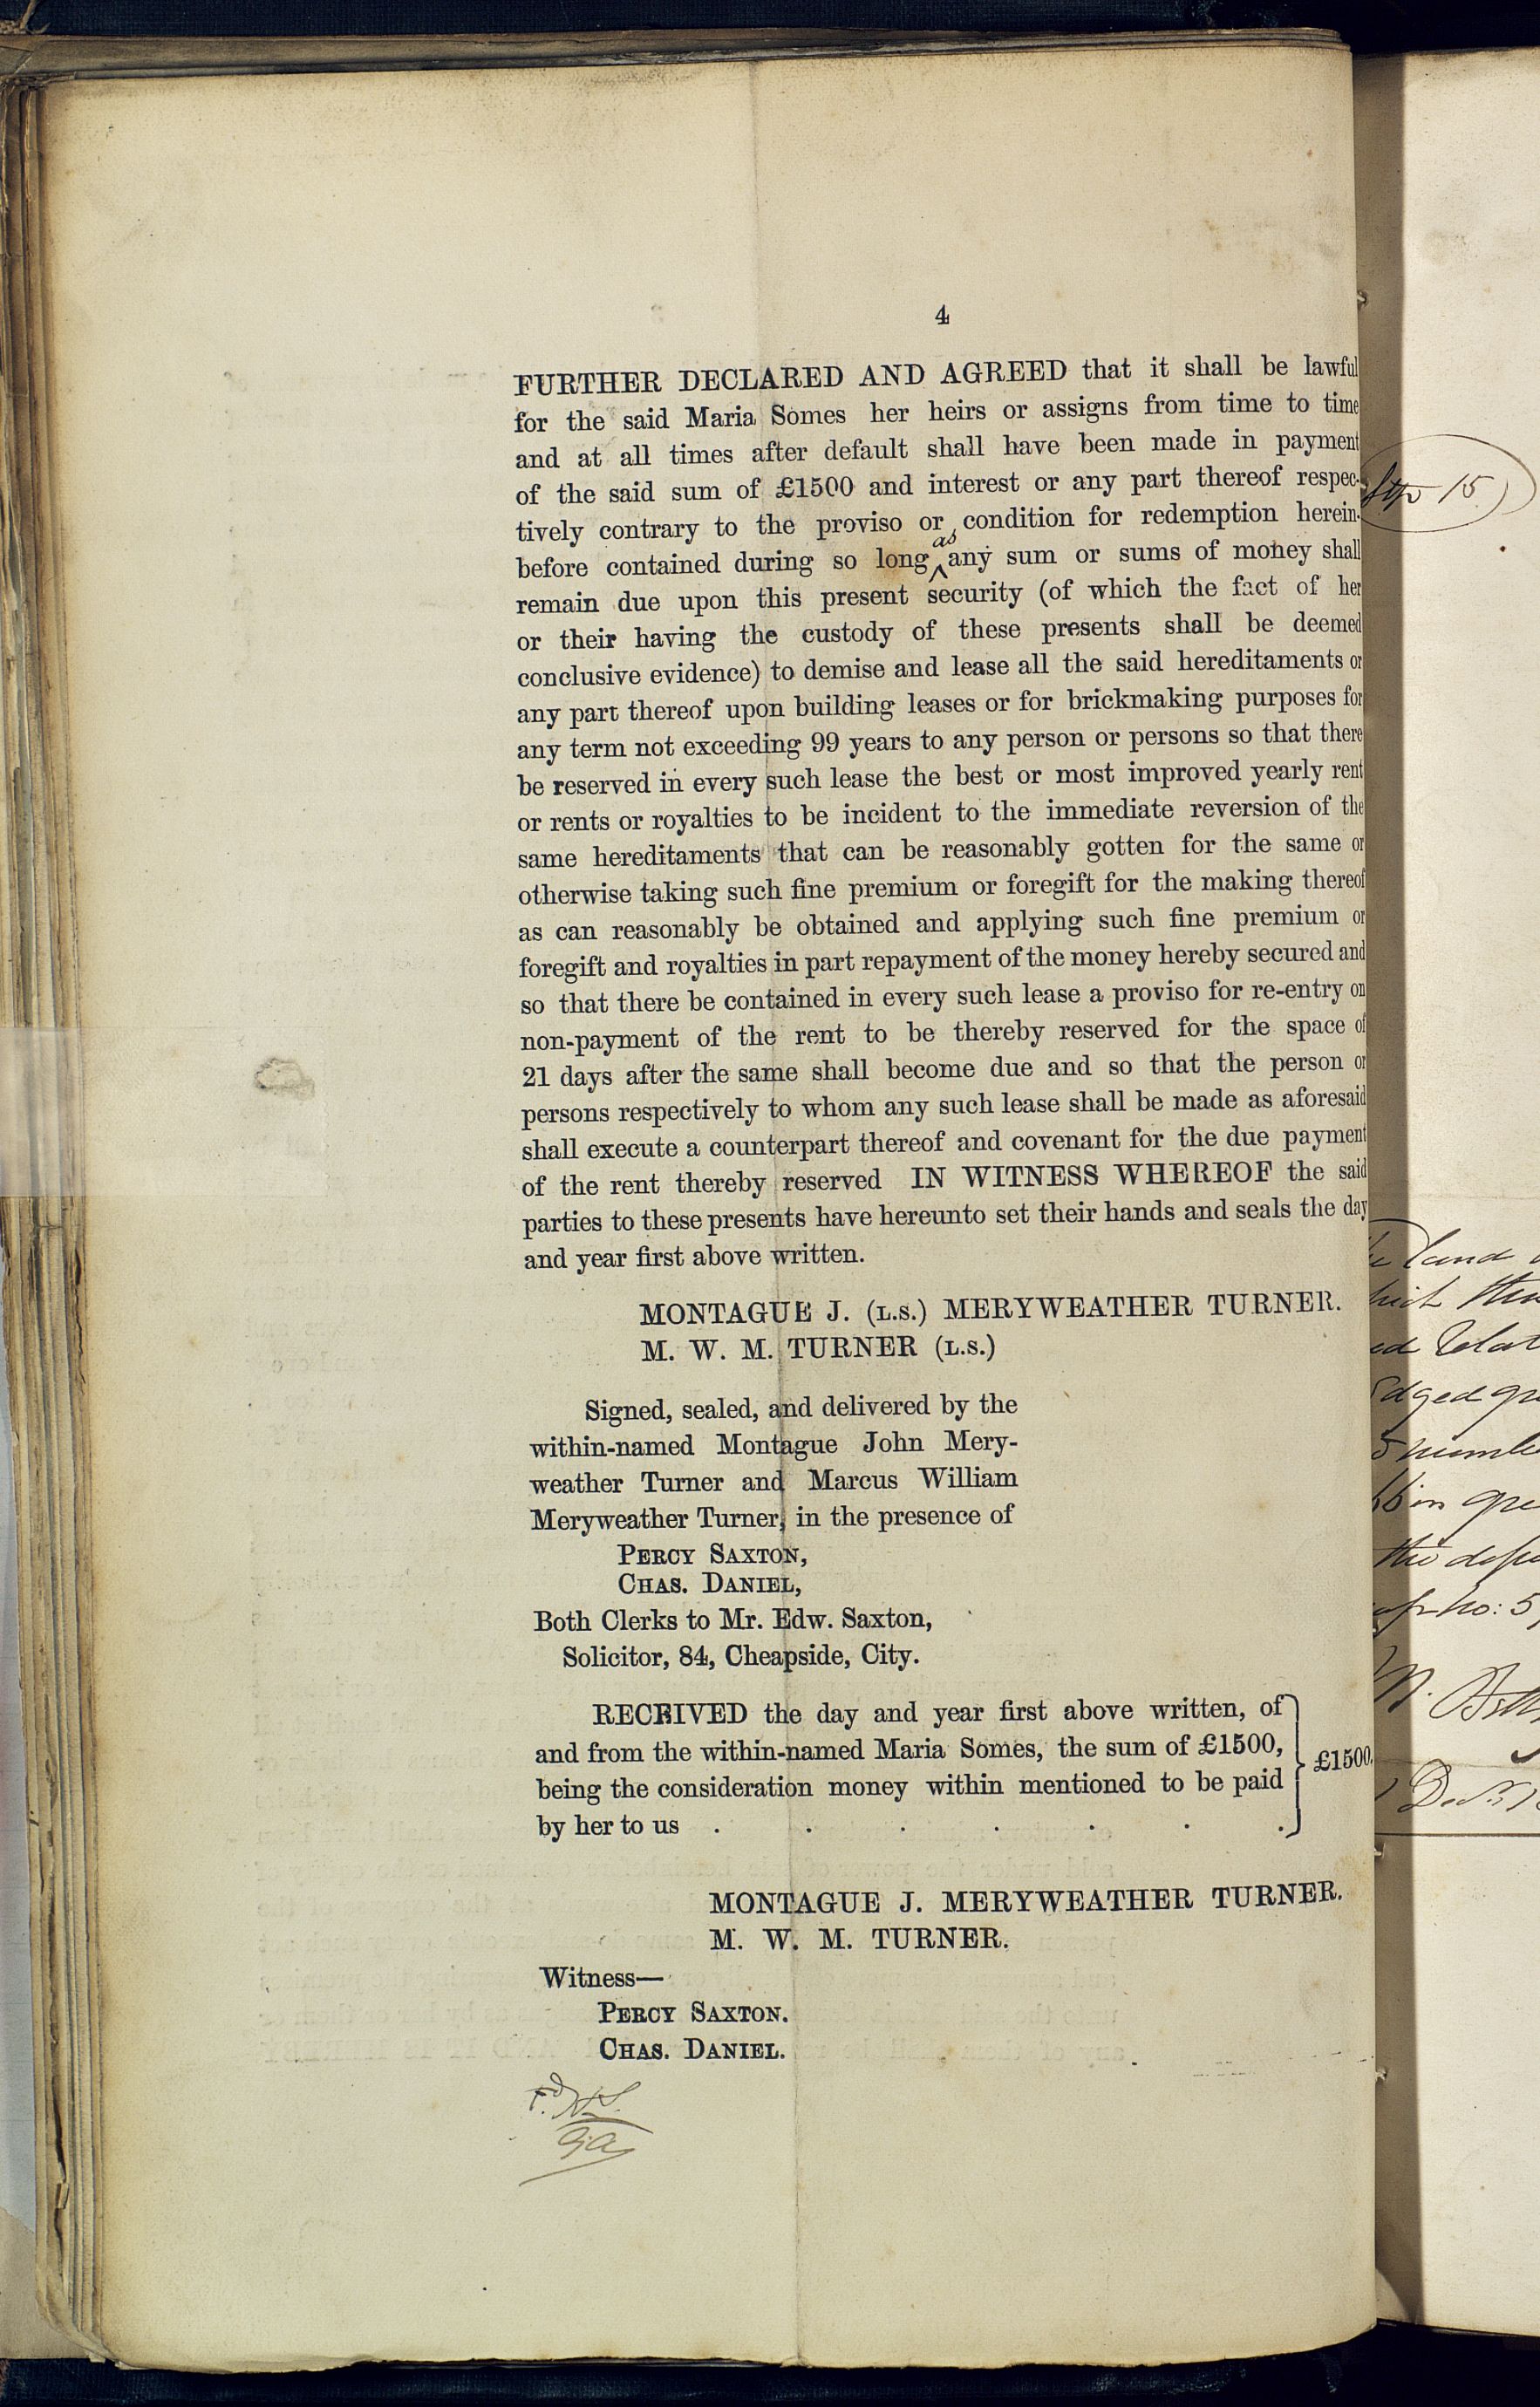 4
FURTHER DECLARED AND AGREED that it shall be lawful
for the said Maria Somes her heirs or assigns from time to time
and at all times after default shall have been made in payment
of the said sum of £1500 and interest or any part thereof respec-
tively contrary to the proviso or condition for redemption herein-
before contained during so long as any sum or sums of money shall
remain due upon this present security (of which the fact of her
or their having the custody of these presents shall be deemed
conclusive evidence) to demise and lease all the said hereditaments or
any part thereof upon building leases or for brickmaking purposes for
any term not exceeding 99 years to any person or persons so that there
be reserved in every such lease the best or most improved yearly rent
or rents or royalties to be incident to the immediate reversion of the
same hereditaments that can be reasonably gotten for the same or
otherwise taking such fine premium or foregift for the making thereof
as can reasonably be obtained and applying such fine premium or
foregift and royalties in part repayment of the money hereby secured and
so that there be contained in every such lease a proviso for re-entry on
non-payment of the rent to be thereby reserved for the space of
21 days after the same shall become due and so that the person or
persons respectively to whom any such lease shall be made as aforesaid
shall execute a counterpart thereof and covenant for the due payment
of the rent thereby reserved IN WITNESS WHEREOF the said
parties to these presents have hereunto set their hands and seals the day
and year first above written.
MONTAGUE J. (L.S.) MERYWEATHER TURNER.
M. W. M. TURNER (L.S.)
Signed, sealed, and delivered by the
within-named Montague John Mery-
weather Turner and Marcus William
Meryweather Turner, in the presence of
PERCY SAXTON,
CHAS. DANIEL,
Both Clerks to Mr. Edw. Saxton,
Solicitor, 84, Cheapside, City.
RECEIVED the day and year first above written, of
and from the within-named Maria Somes, the sum of £1500,
being the consideration money within mentioned to be paid
by her to us . . . . . . .
£1500.
MONTAGUE J. MERYWEATHER TURNER.
M. W. M. TURNER.
Witness—
PERCY SAXTON.
CHAS. DANIEL.
15
land
edged
the
no: 5